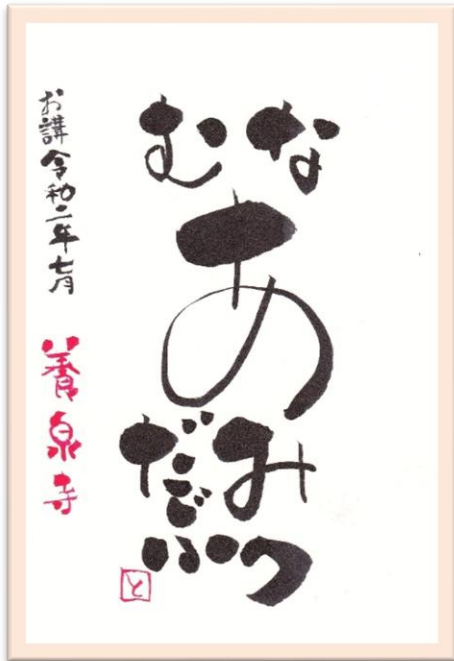 なむ
あ
みだ
ぶつ
お講令和二年七月
養泉寺
と